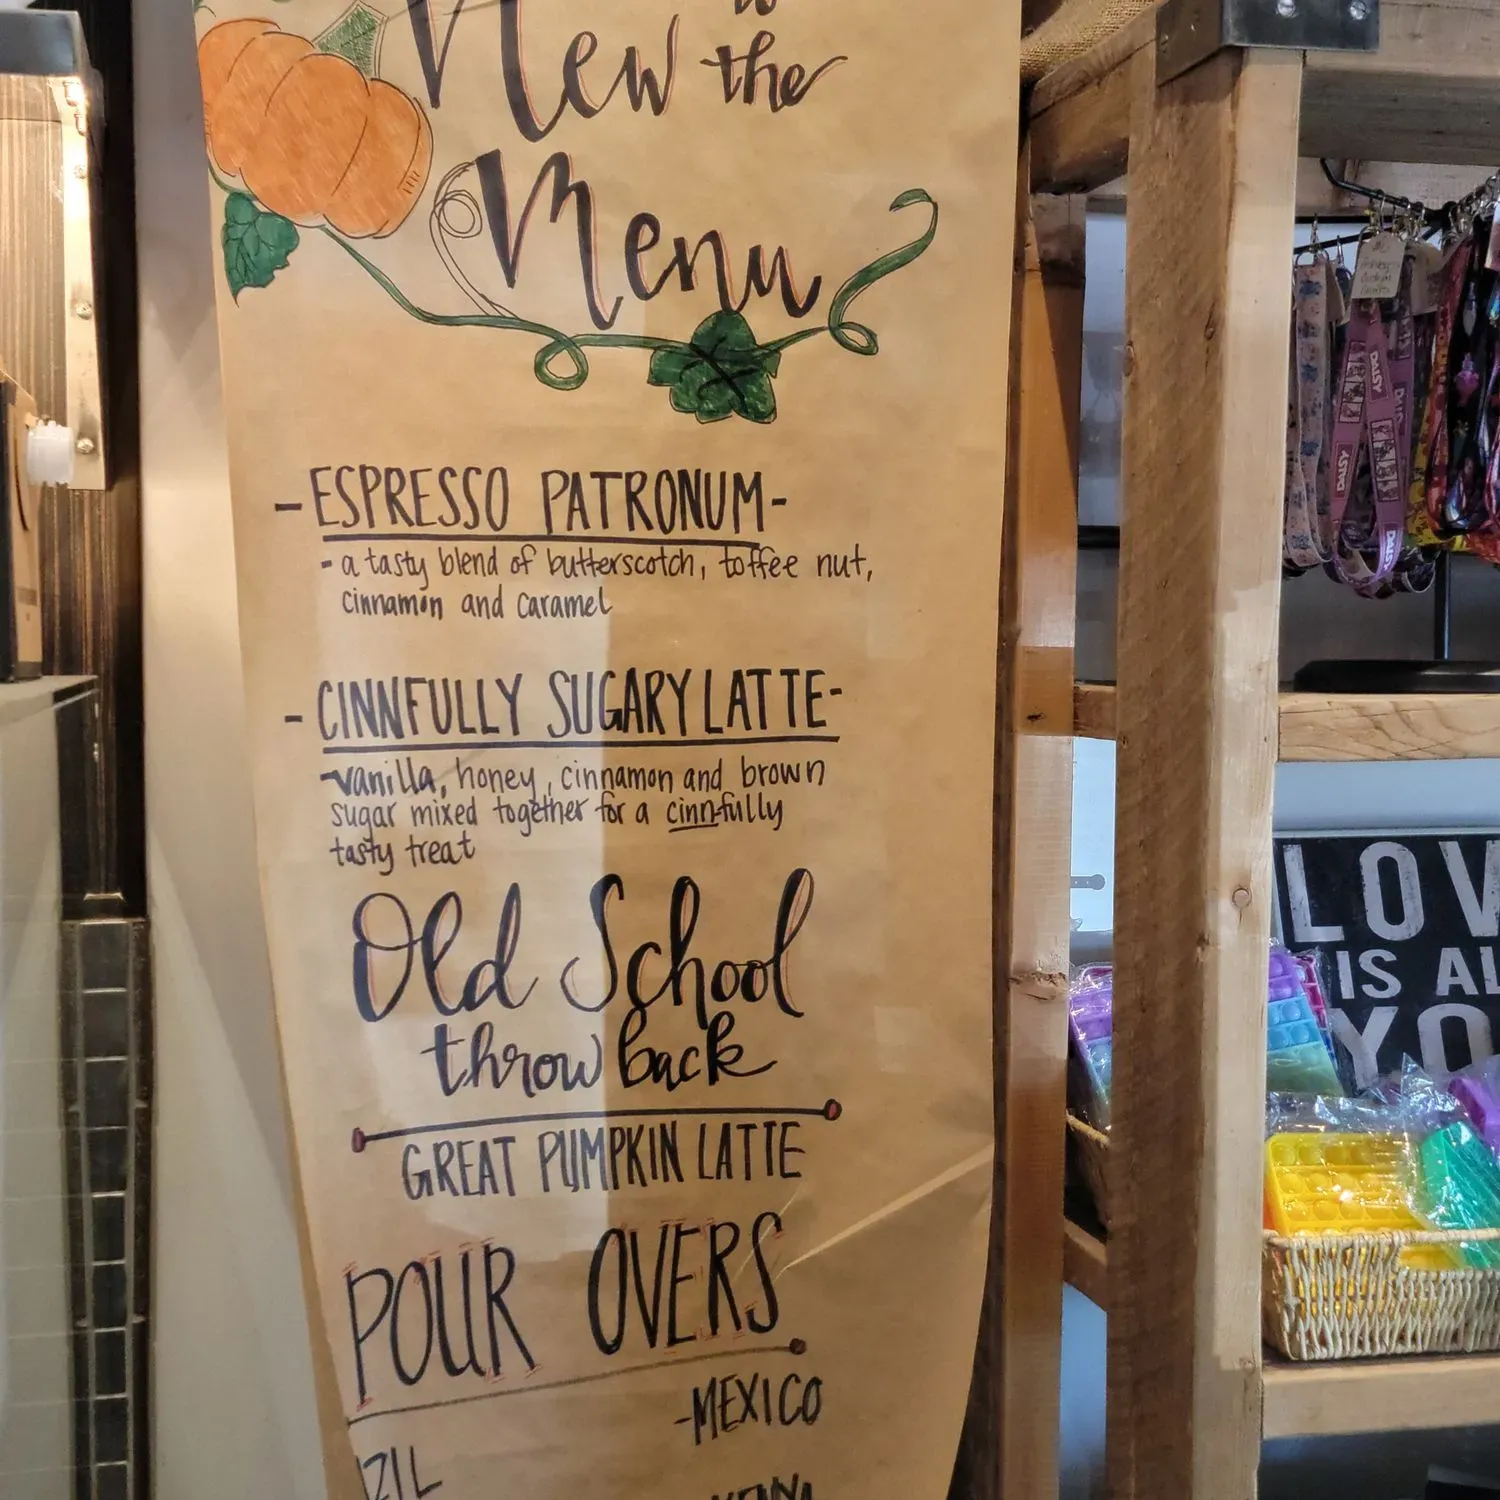 New to the
Menu
- ESPRESSO PATRONUM -
- a tasty blend of butterscotch, toffee nut,
cinnamon and caramel
- CINNFULLY SUGARY LATTE -
- vanilla, honey, cinnamon and brown
sugar mixed together for a cinn-fully
tasty treat
Old School
throw back
GREAT PUMPKIN LATTE
POUR OVERS
- MEXICO
ZIL
KENYA
DAISY
DAISY
DAISY
LOV
IS AL
YO